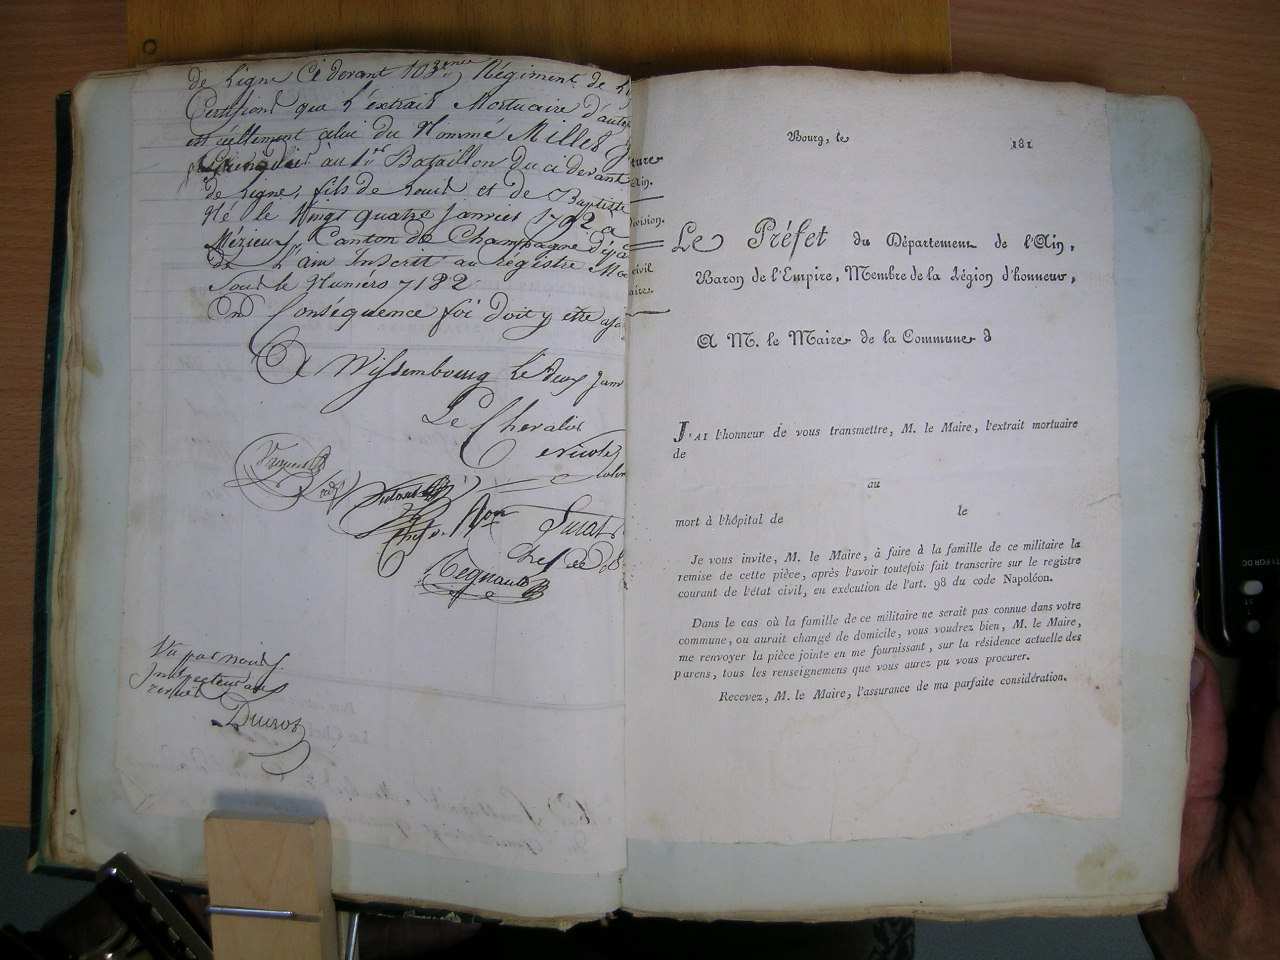 de Ligne Ci devant 103eme Régiment de
Certifions que L'extrait Mortuaire d'autre
est réellement celui du Nommé Millet
au 1er Bataillon du ci devant
de Ligne, fils de Louis et de Baptiste
Né le Vingt quatre Janvier 1792 à
Mézieux, Canton de Champagne dép.
de L'ain Inscrit au registre
Sous le Numéro 7182
En Conséquence foi doit y être
A Wissembourg le deux Janv
Le Chevalier
Chef de Bon
Regnault
Vu par nous
Inspecteur aux
revues
Duroz
ture
Ain.
ivision.
civil
aire.
Bourg, le 181
Le Préfet du Département de l'Ain,
Baron de l'Empire, Membre de la Légion d'honneur,
A M. le Maire de la Commune d
J'AI l'honneur de vous transmettre, M. le Maire, l'extrait mortuaire
de
au
mort à l'hôpital de le
Je vous invite, M. le Maire, à faire à la famille de ce militaire la
remise de cette pièce, après l'avoir toutefois fait transcrire sur le registre
courant de l'état civil, en exécution de l'art. 98 du code Napoléon.
Dans le cas où la famille de ce militaire ne serait pas connue dans votre
commune, ou aurait changé de domicile, vous voudrez bien, M. le Maire,
me renvoyer la pièce jointe en me fournissant, sur la résidence actuelle des
parens, tous les renseignemens que vous aurez pu vous procurer.
Recevez, M. le Maire, l'assurance de ma parfaite considération.